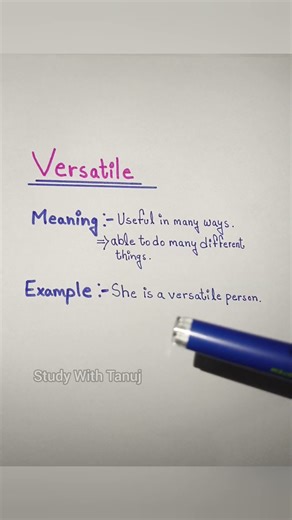 Versatile
Meaning :- Useful in many ways.
⇒ able to do many different
things.
Example :- She is a versatile person.
Study With Tanuj